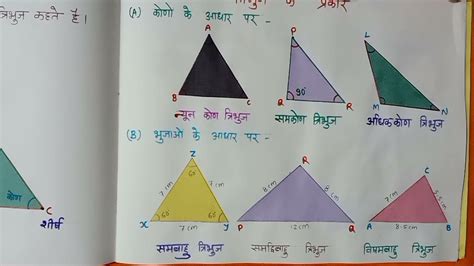 त्रिभुज कहते है।
प्रकार
(A) कोणो के आधार पर -
A
B
C
P
90°
Q
R
L
M
N
न्यून कोण त्रिभुज
समकोण त्रिभुज
अधिककोण त्रिभुज
(B) भुजाओं के आधार पर -
Z
60°
7 cm
7 cm
60°
60°
X
7 cm
Y
R
8 cm
8 cm
P
12 cm
Q
C
7 cm
A
8.5 cm
B
समबाहु त्रिभुज
समद्विबाहु त्रिभुज
विषमबाहु त्रिभुज
कोण
C
शीर्ष